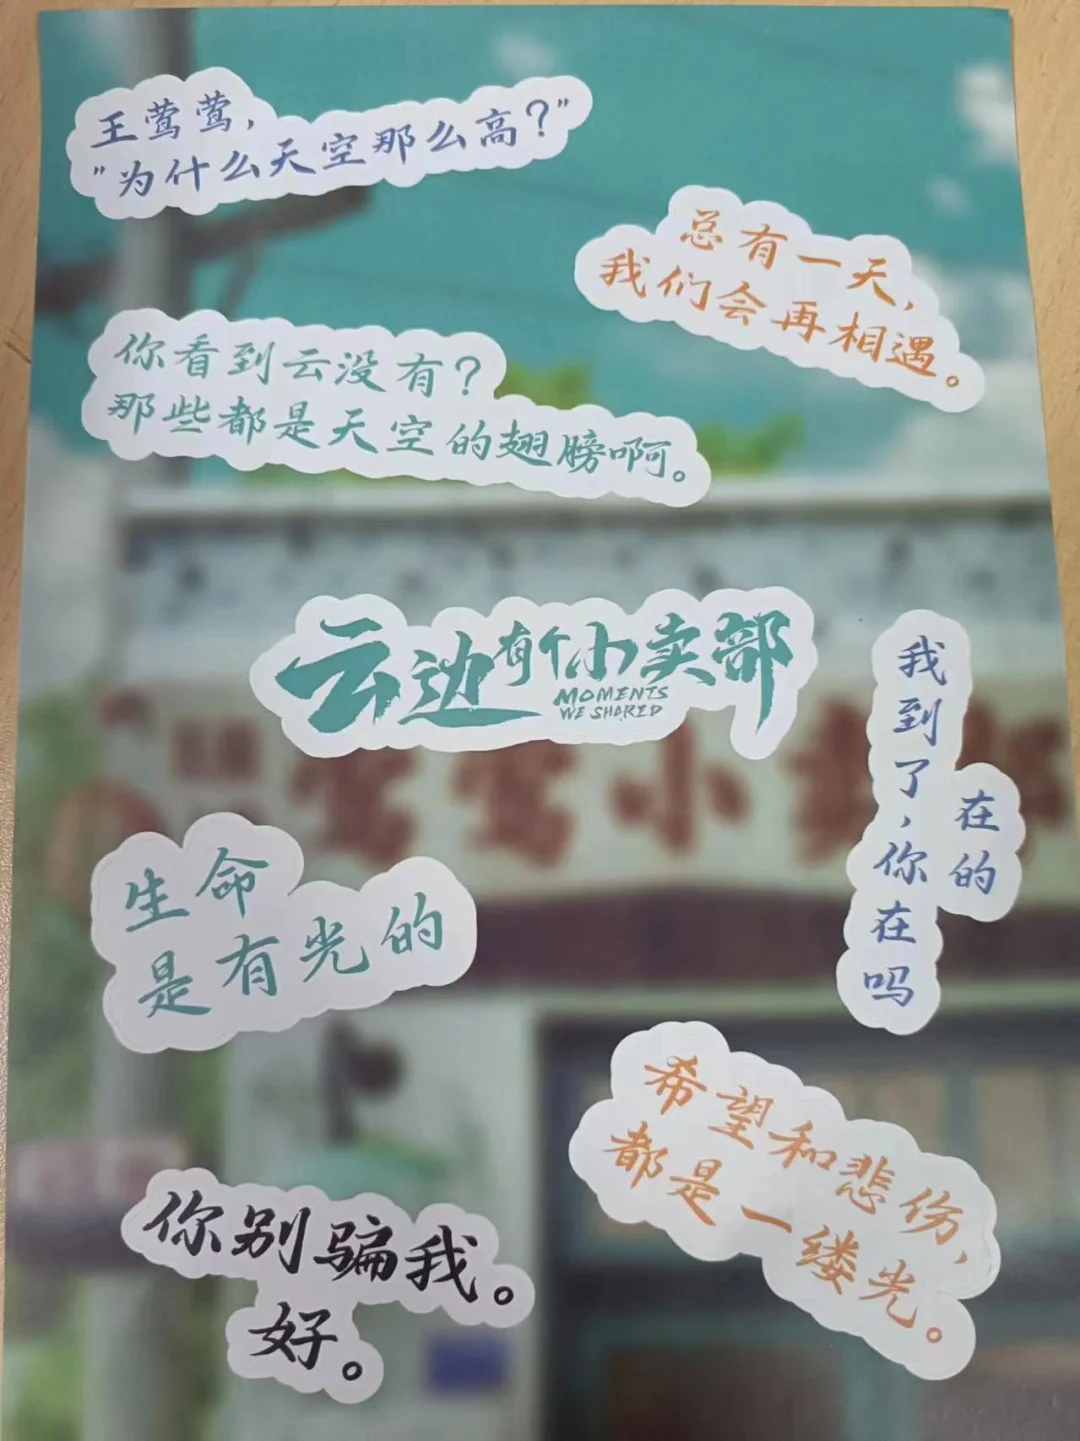 王莺莺,
"为什么天空那么高?"
总有一天,
我们会再相遇。
你看到云没有?
那些都是天空的翅膀啊。
云边有个小卖部
MOMENTS
WE SHARED
我到了,你在吗
在的
生命
是有光的
希望和悲伤,
都是一缕光。
你别骗我。
好。